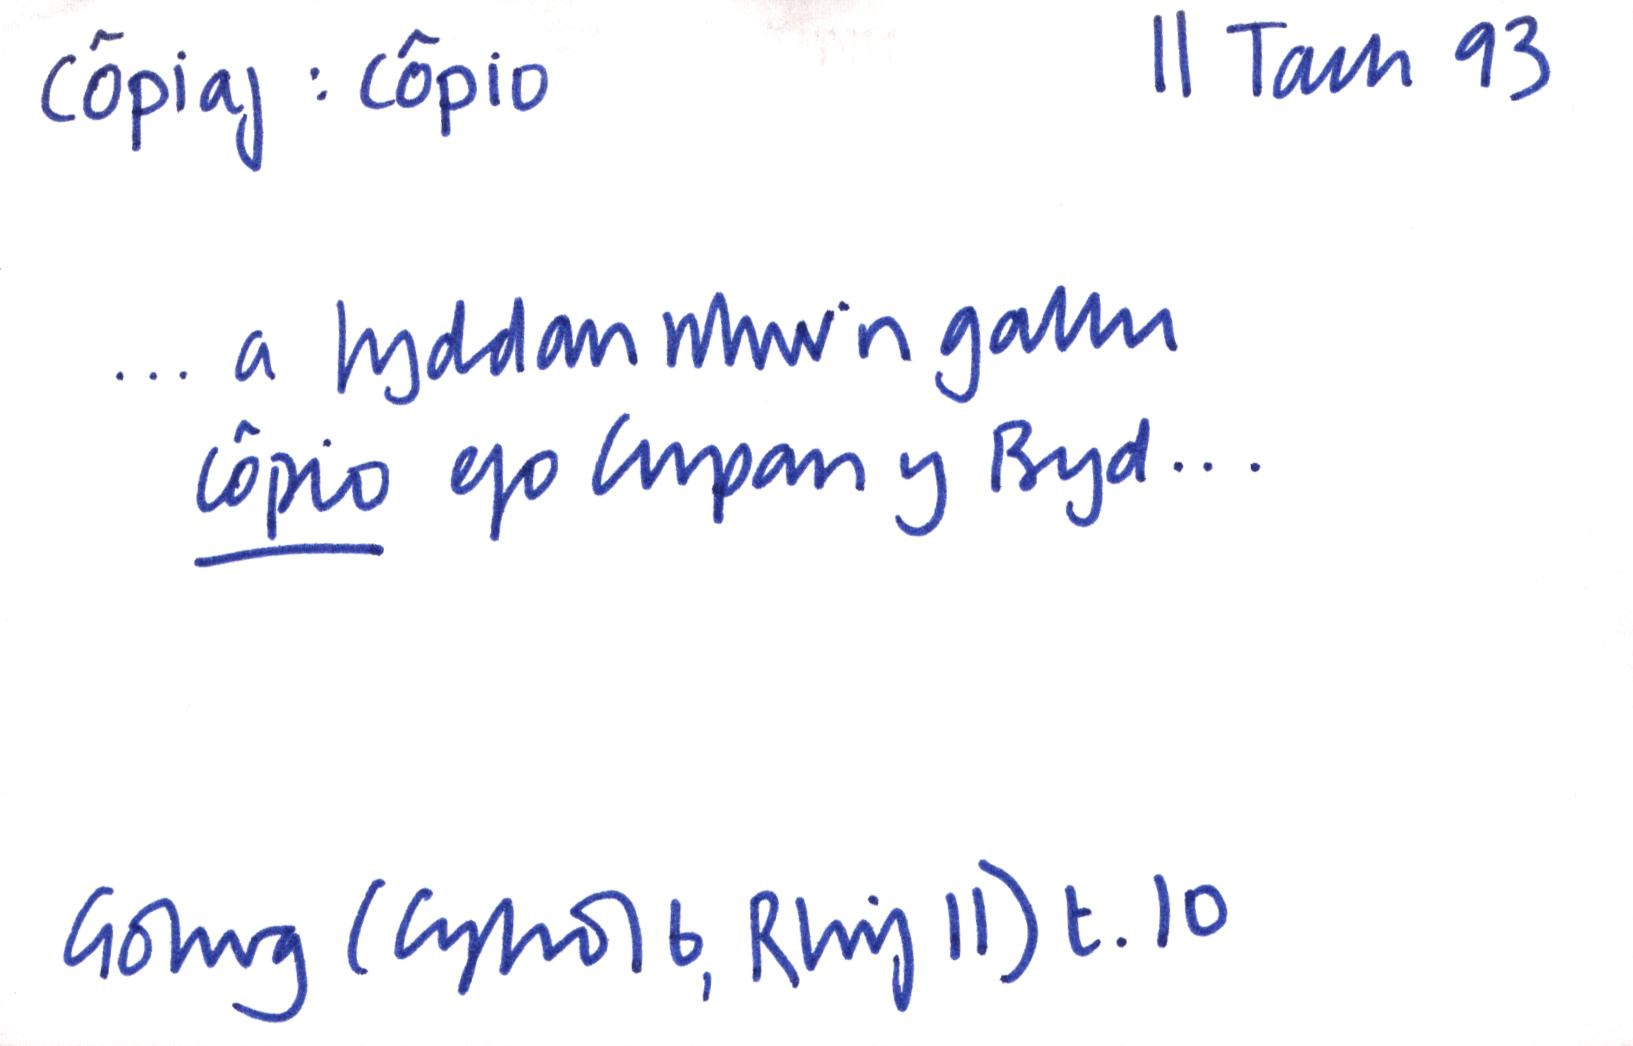 côpiaf : côpio
11 Tach 93
... a fyddan nhw'n gallu
côpio efo Cwpan y Byd...
Golwg (Cyfrol 6, Rhif 11) t.10